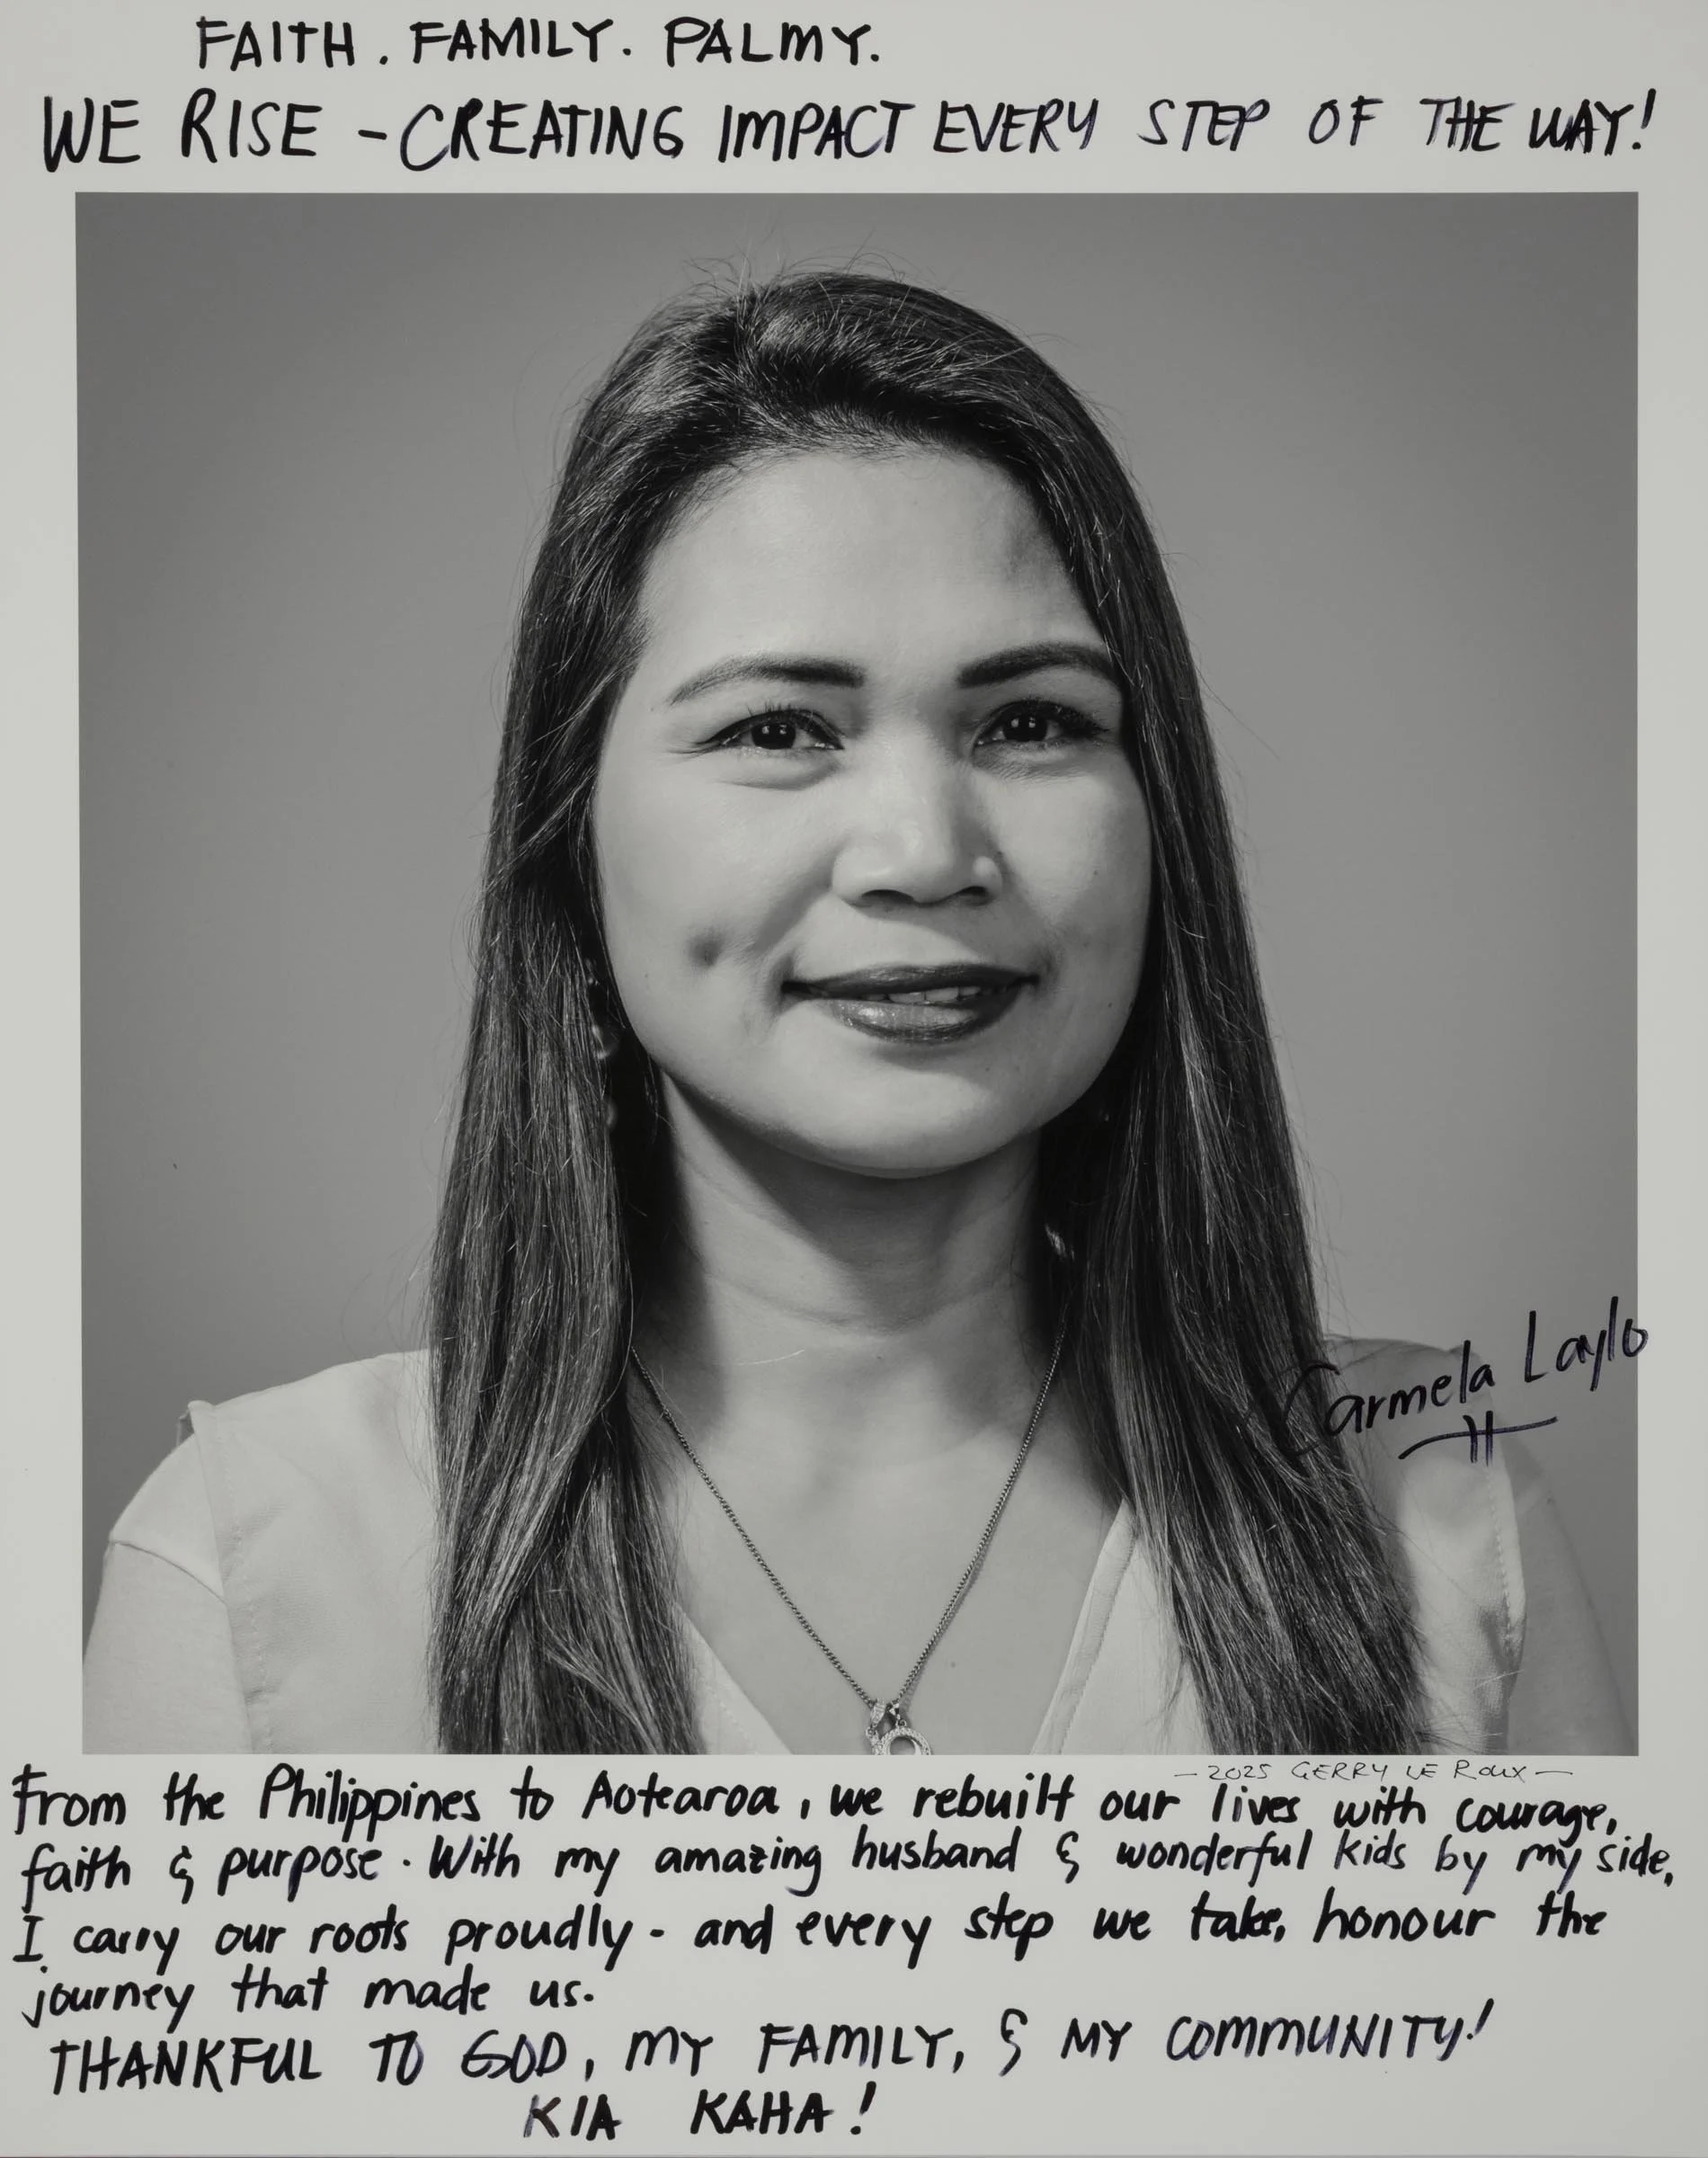 FAITH. FAMILY. PALMY.
WE RISE - CREATING IMPACT EVERY STEP OF THE WAY!
Carmela Laylo
- 2025 GERRY LE ROUX -
From the Philippines to Aotearoa, we rebuilt our lives with courage,
faith & purpose. With my amazing husband & wonderful kids by my side,
I carry our roots proudly - and every step we take, honour the
journey that made us.
THANKFUL TO GOD, MY FAMILY, & MY COMMUNITY!
KIA KAHA!